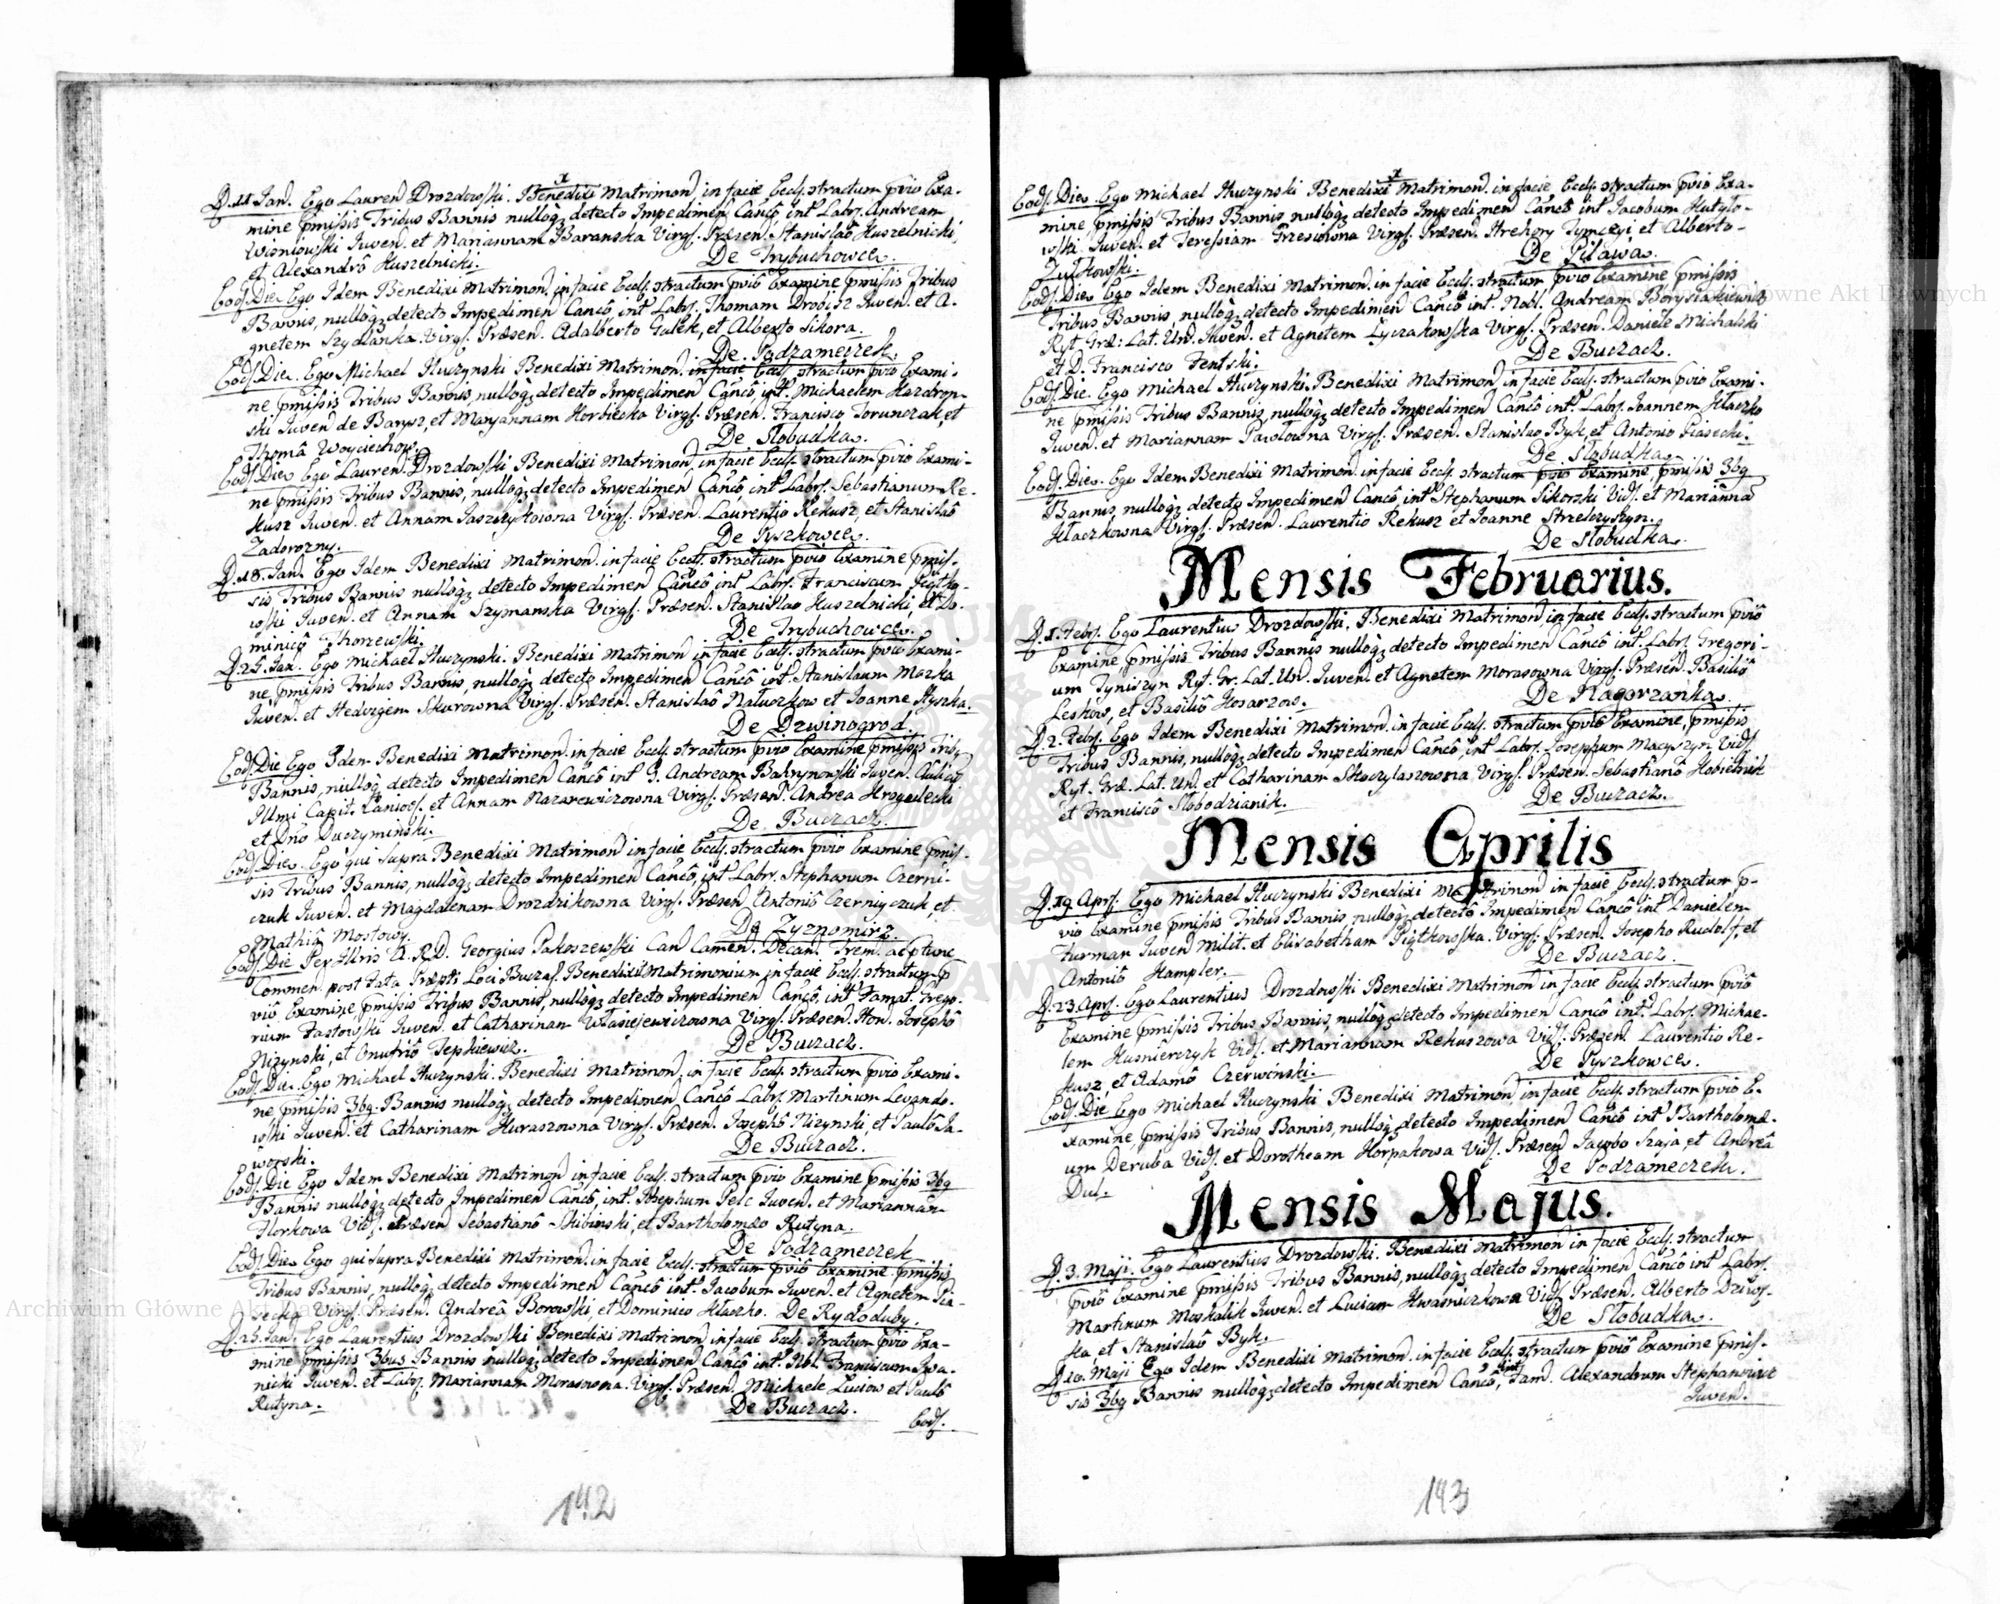 D. 11 Jan. Ego Lauren Drozdowski. Benedixi Matrimon. in facie Eccl. stractum pvio Exa-
mine pmissis Tribus Bannis nulloq detecto Impedimen Canco int Labr. Andream
Wisniowski Iuven. et Mariannam Baranska Virg. Præsen. Stanislaô Huszelnicki,
et Alexandrô Huszelnicki.
De Trybuchowce.
Eod. Die Ego Idem Benedixi Matrimon. in facie Eccl. stractum pviô Examine pmissis Tribus
Bannis, nulloq detecto Impedimen Canco int Labr. Thomam Iuven. et A-
gnetem Szydlanka Virg. Præsen. Adalberto Galek, et Alberto Sikora.
De Podzameczek.
Eod. Die. Ego Michael Huczynski Benedixi Matrimon. in facie Eccl stractum pvio Exami-
ne pmissis Tribus Bannis, nulloq detecto Impedimen Canco, int. Michaelem Hazdrom-
ski Iuven de Barysz, et Maryannam Horbiecko Virg. Præsen. Francisco Torunczak, et
Thomâ Woyciechow.
De Slobudka.
Eod. Die Ego Lauren. Drozdowski Benedixi Matrimon. in facie Eccl. stractum pvio Exami-
ne pmissis Tribus Bannis, nulloq detecto Impedimen Canco, int Labr. Sebastianum Re-
kusz Iuven. et Annam Virg. Præsen. Laurentio Rekusz, et Stanislaô
Zadorozny.
De Pyszkowce.
D. 18. Jan. Ego Idem Benedixi Matrimon. in facie Eccl. stractum pvio Examine pmis-
sis Tribus Bannis nulloq detecto Impedimen Canco int Labr. Franciscum Piątko-
wski Iuven. et Annam Szymanska Virg. Præsen. Stanislao Huszelnicki et Do-
minicô Thorzewski.
De Trybuchowce.
D. 25. Jan. Ego Michael Huczynski. Benedixi Matrimon in facie Eccl. stractum pvio Exami-
ne pmissis Tribus Bannis, nulloq detecto Impedimen Canco int. Stanislaum Mazka
Iuven. et Hedvigem Skurowna Virg. Præsen. Stanislaô Naluczkow et Ioanne Hyszka.
De Dzwinogrod.
Eod. Die Ego Idem Benedixi Matrimon. in facie Eccl. stractum pvio Examine pmissis Trib.
Bannis, nulloq detecto Impedimen Cancô int G. Andream Bakrynowski Iuven. Aulicô
Illmi Capit. Kaniov. et Annam Nazarewiczowna Virg. Præsen. Andrea Hrogulecki
et Dno Duczyminski.
De Buczacz.
Eod. Die. Ego qui supra Benedixi Matrimon in facie Eccl. stractum pvio Examine pmis-
sis Tribus Bannis, nulloq detecto Impedimen Canco, int Labr. Stephanum Czerni-
czuk Iuven. et Magdalenam Drozdzikowna Virg. Præsen. Antoniô Czerniyczuk, et
Mathiâ Mostowy.
De Zyznomirz.
Eod. Die PerIllris A. R.D. Georgius Pakoszewski Can. Camen. Decan. Trem. ac ptunc
Commen. post Fata Præpti Loci Buczac. Benedixit Matrimonium in facie Eccl. stractum p-
viô Examine pmissis Tribus Bannis, nulloq detecto Impedimen Cancô, int Famat. Grego-
rium Fastowski Iuven. et Catharinam Wlasiejewiczowna Virg. Præsen. Hon. Iosephô
Nizynski, et Onufriô Tepkiewicz.
De Buczacz.
Eod. Die. Ego Michael Huczynski. Benedixi Matrimon. in facie Eccl. stractum pvio Exami-
ne pmissis 3bq. Bannis nulloq detecto Impedimen Cancô Labr. Martinum Levando-
wski Iuven. et Catharinam Huraszowna Virg. Præsen. Iosephô Nizynski, et Paulô Ja-
worski.
De Buczacz.
Eod. Die Ego Idem Benedixi Matrimon in facie Eccl. stractum pvio Examine pmissis 3bq
Bannis nulloq detecto Impedimen Cancô, int. Iosephum Pelc Iuven. et Mariannam
Florkowa Vid. Præsen Sebastianô Skibinski, et Bartholomæo Rutyna.
De Podzameczek
Eod. Die. Ego qui supra Benedixi Matrimon. in facie Eccl. stractum pviô Examine pmissis
Tribus Bannis, nulloq detecto Impedimen Cancô int. Iacobum Iuven. et Agnetem Pia-
secka Virg. Præsen. Andreâ Borowski et Dominico Klaczko. De Rydoduby.
D. 25. Jan. Ego Laurentius Drozdowski Benedixi Matrimon in facie Eccl. stractum pvio Exa-
mine pmissis 3bus Bannis nulloq detecto Impedimen Cancô int. Nbl. Franciscum Sza-
nicki Iuven. et Labr. Mariannam Morasowna. Virg. Præsen. Michaele Luciow et Paulô
Rutyna.
De Buczacz.
Eod.
142
Eod. Die. Ego Michael Huczynski Benedixi Matrimon. in facie Eccl. stractum pvio Exa-
mine pmissis Tribus Bannis nulloq detecto Impedimen Cancô int Iacobum Hutylo-
wski Iuven. et Teressiam Grzesiowna Virg. Præsen. Hrehory Tymczyi et Alberto
Zulkowski.
De Pilawa.
Eod. Die. Ego Idem Benedixi Matrimon. in facie Eccl. stractum, pvio Examine pmissis
Tribus Bannis, nulloq detecto Impedimen Cancô int. Nobl. Andream Borysiakiewicz
Ryt. Græ: Lat. Un. Iuven. et Agnetem Lyczakowska Virg. Præsen. Daniele Michalski
et D. Francisco Tentski.
De Buczacz.
Eod. Die. Ego Michael Huczynski. Benedixi Matrimon in facie Eccl. stractum pvio Exami-
ne pmissis Tribus Bannis, nulloq detecto Impedimen Cancô int. Labr. Ioannem Klaczko
Iuven. et Mariannam Pawlowna Virg. Præsen. Stanislao Byk, et Antonio Piasecki.
De Slobudka.
Eod. Die. Ego Idem Benedixi Matrimon. in facie Eccl. stractum pvio Examine pmissis 3bq
Bannis, nulloq detecto Impedimen Cancô int Stephanum Sikorski Vid. et Marianna
Klaczkowna Virg. Præsen. Laurentio Rekusz et Ioanne Strzelczyszyn.
De Slobudka.
Mensis Februarius.
D. 1. Febr. Ego Laurentius Drozdowski. Benedixi Matrimon in facie Eccl. stractum pviô
Examine, pmissis Tribus Bannis nulloq detecto Impedimen Cancô int. Labr. Gregori-
um Tyniszyn Ryt. Gr. Lat. Un. Iuven. et Agnetem Morasowna Virg. Præsen. Basiliô
Leskow, et Basiliô Kosarzow.
De Nagorzanka.
D. 2. Febr. Ego Idem Benedixi Matrimon. in facie Eccl. stractum pviô Examine, pmissis
Tribus Bannis, nulloq detecto Impedimen Cancô, int Labr. Iosephum Macyszyn Vid.
Ryt. Græ. Lat. Un. et Catharinam Skoczylaszowna Virg. Præsen. Sebastianô Kobielnik
et Franciscô Slobodzianik.
De Buczacz.
Mensis Aprilis
D. 19 Apr. Ego Michael Huczynski Benedixi Matrimon in facie Eccl. stractum p-
vio Examine pmissis Tribus Bannis, nulloq detectô Impedimen Cancô int Danielem
Furman Iuven Milit. et Elisabetham Piątkowska. Virg. Præsen. Iosepho Rudolf, et
Antoniô Hampler.
De Buczacz.
D. 23 Apr. Ego Laurentius Drozdowski Benedixi Matrimon in facie Eccl. stractum pviô
Examine pmissis Tribus Bannis, nulloq detecto Impedimen Cancô int. Labr. Michae-
lem Husnierczyk Vid. et Mariannam Rekuszowa Vid. Præsen. Laurentio Re-
kusz, et Adamô Czerwinski.
De Pyszkowce.
Eod. Die Ego Michael Huczynski Benedixi Matrimon in facie Eccl. stractum pviô E-
xamine, pmissis Tribus Bannis, nulloq detecto Impedimen Cancô int Bartholomæ-
um Deruba Vid. et Dorotheam Horpakowa Vid. Præsen Iacobo Szaja, et Andreâ
Dul.
De Podzameczek.
Mensis Majus.
D. 3. Maji. Ego Laurentius Drozdowski. Benedixi Matrimon in facie Eccl. stractum
pviô Examine pmissis Tribus Bannis, nulloq detecto Impedimen Cancô int Labr.
Martinum Moskalik Iuven. et Luciam Kwasniczkowa Vid. Præsen. Alberto
ka, et Stanislaô Byk.
De Slobudka.
D. 10. Maji Ego Idem Benedixi Matrimon. in facie Eccl. stractum pviô Examine pmis-
sis 3bq Bannis nulloq detecto Impedimen Cancô, int Fam. Alexandrum Stephanowicz
Iuven.
143
Archiwum Główne Akt Dawnych